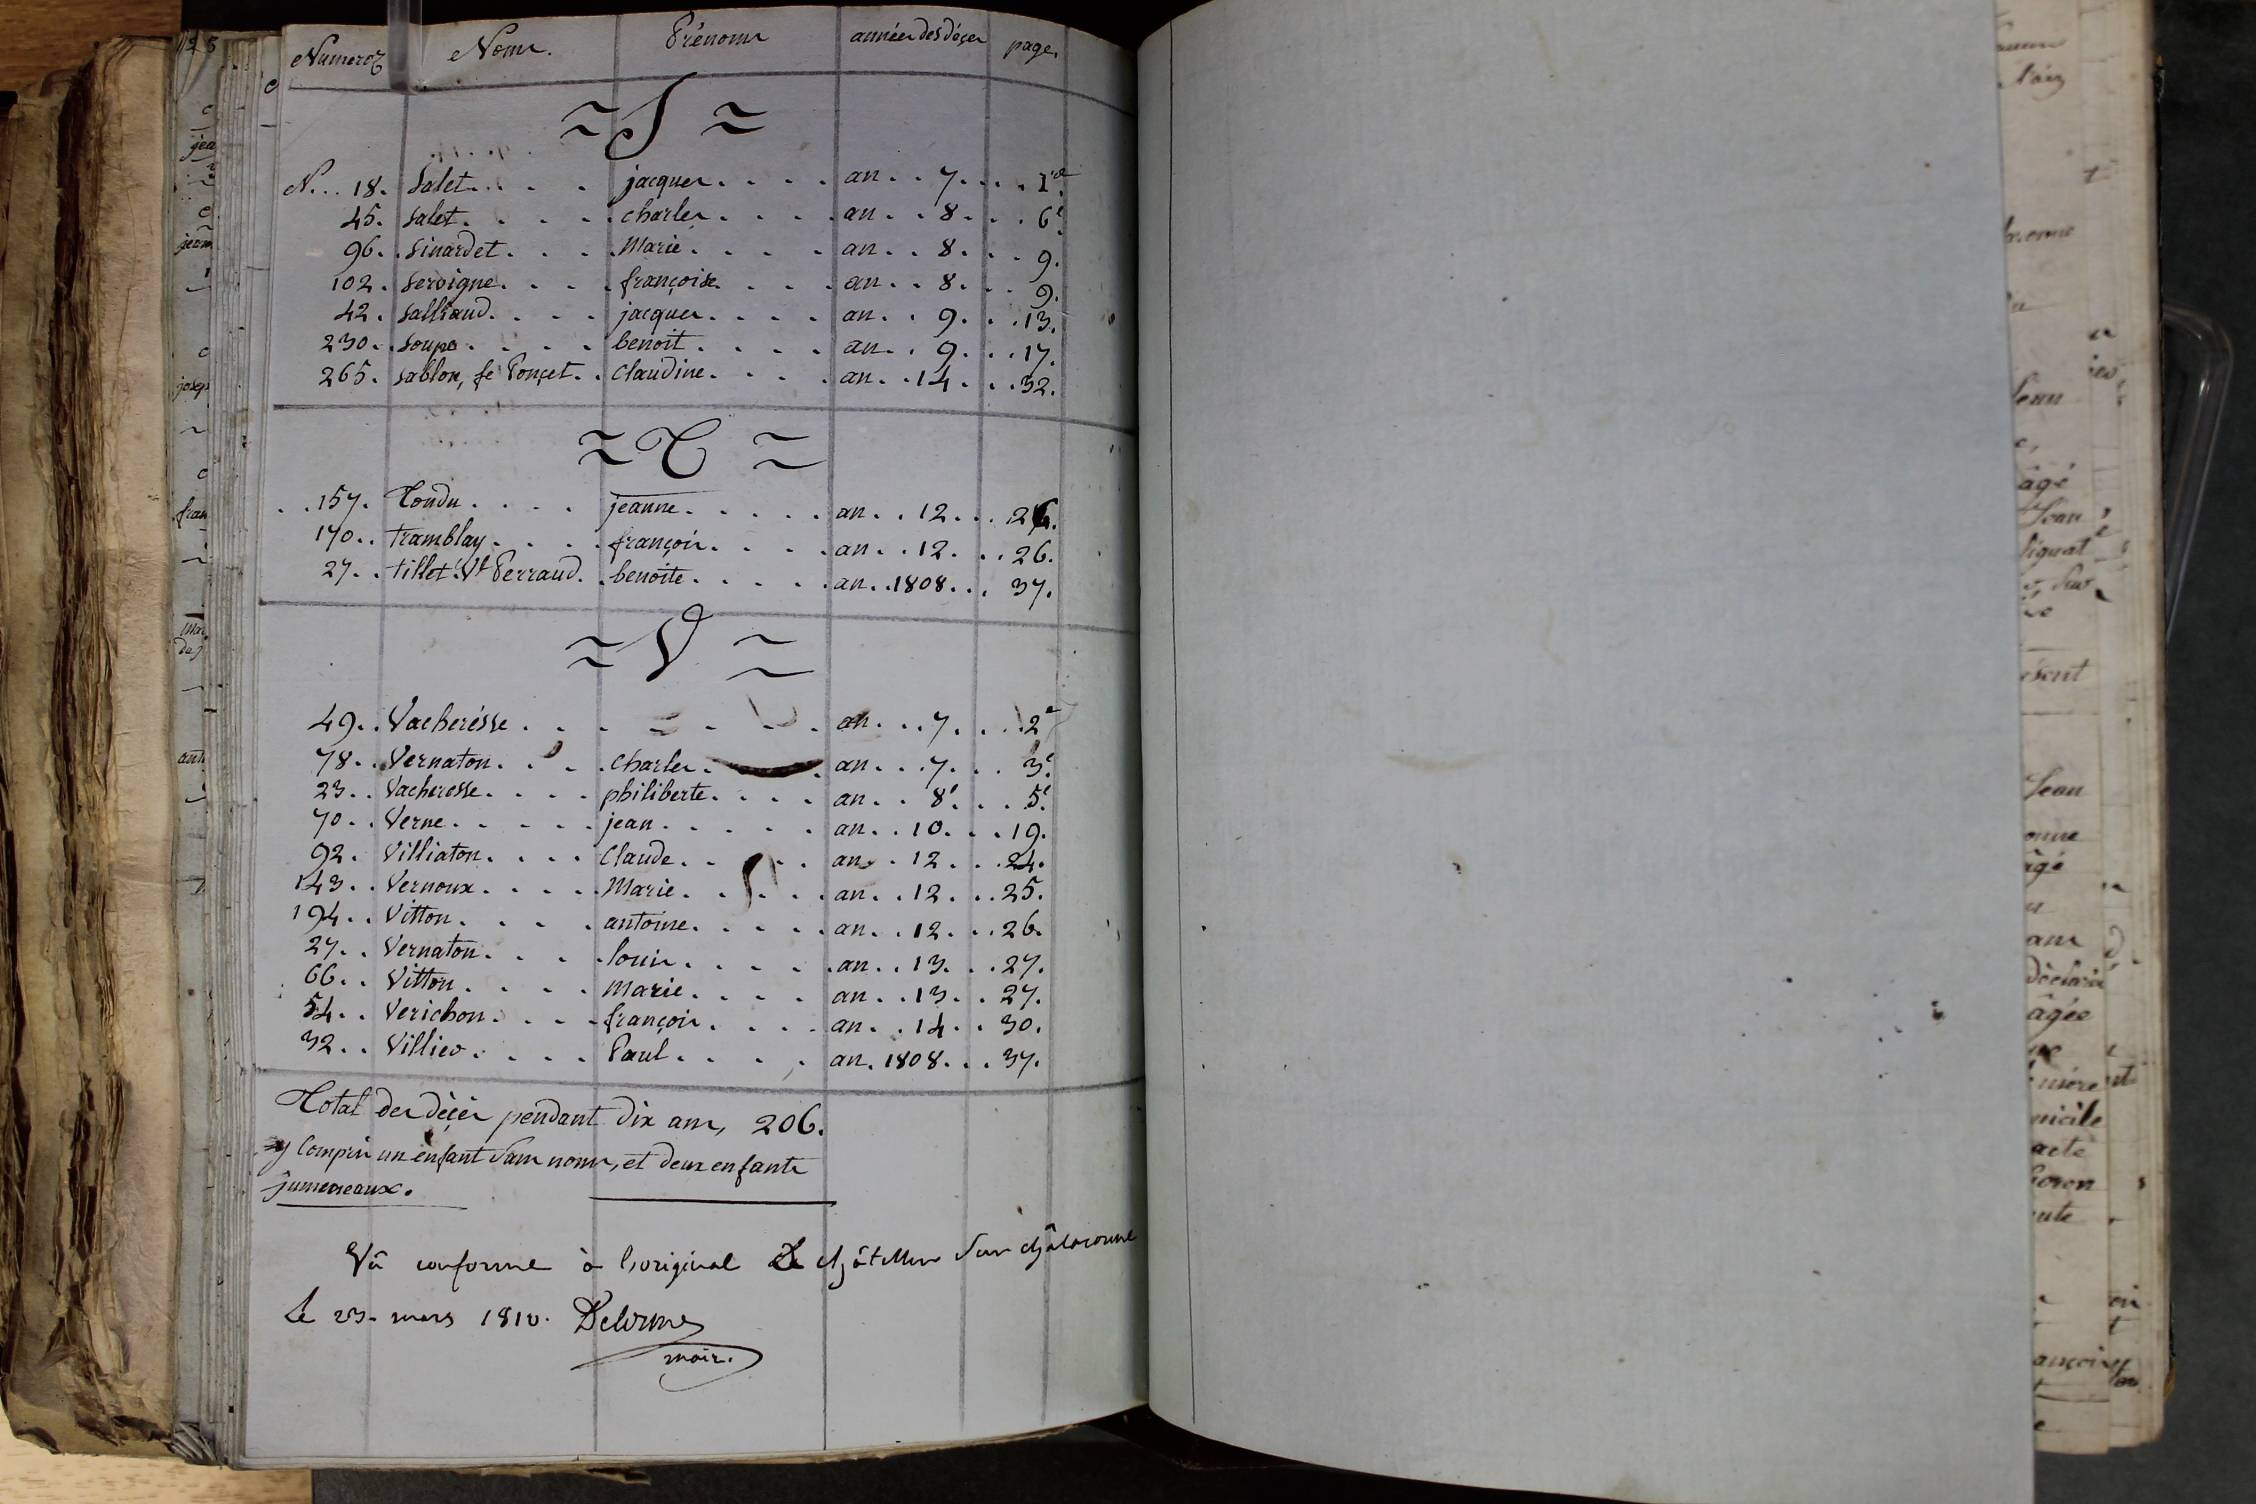 Numeroz Noms. Prénoms années des déçes page.
~ S ~
N... 18. Salet. . . . jacques. . . . an . . 7. . . . 1re
45. Salet. . . . charles . . . . an . . 8. . . . 6e
96. Sinardet. . . . Marie . . . . an . . 8. . . . 9.
102. Servigne. . . . françoise . . . an . . 8. . . . 9.
42. Salliaud. . . . jacques. . . . an. . 9. . . 13.
230. Soupe . . . . benoit. . . . an. . 9. . . 17.
265. Sablon, fe Ponçet. . Claudine. . . . an. . 14. . . 32.
~ T ~
157. Tondu. . . . jeanne. . . . an. . 12. . .
170. tramblay. . . . françois. . . . an. . 12. . . 26.
27. tillet Ve Perraud. . benoite. . . . an. .1808. . . 37.
~ V ~
49. Vacherésse . . . . an. . .7. . . . 2e
78. Vernaton. . . . Charles. . an. . .7. . . 3e
23. Vacheresse. . . . philiberte. . . . an. . 8e. . . 5e
70. Verne. . . . jean. . . . an. . 10. . . 19.
92. Villiaton. . . . Claude. . . . an . 12. . . 24.
143. Vernoux. . . . Marie. . . . an. . 12. . . 25.
194. Vitton. . . . antoine. . . . an. . 12. . . 26.
27. Vernaton. . . . louis. . . . an. . 13. . . 27.
66. Vitton. . . . Marie. . . . an. . 13. . . 27.
54. Verichon. . . . françois. . . . an. . 14. . . 30.
32. Villieo. . . . Paul. . . . an. 1808. . . 37.
Total des déçès pendant dix ans, 206.
y Compris un enfant Sans noms, et deux enfants
jumeneaux.
Vû conforme à l'original à châtillon Sur chalaronne
le 23. mars 1810. Delorme
maire.